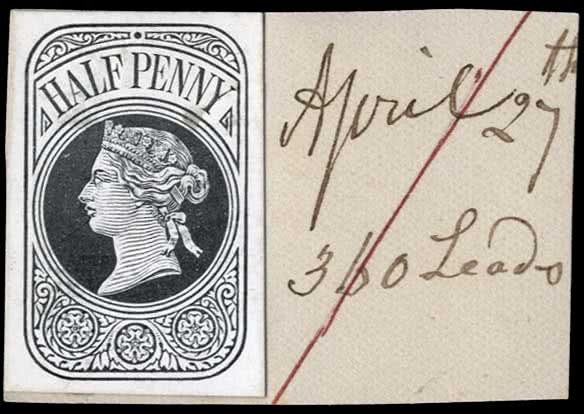 HALF PENNY
April 27th
360 Leads